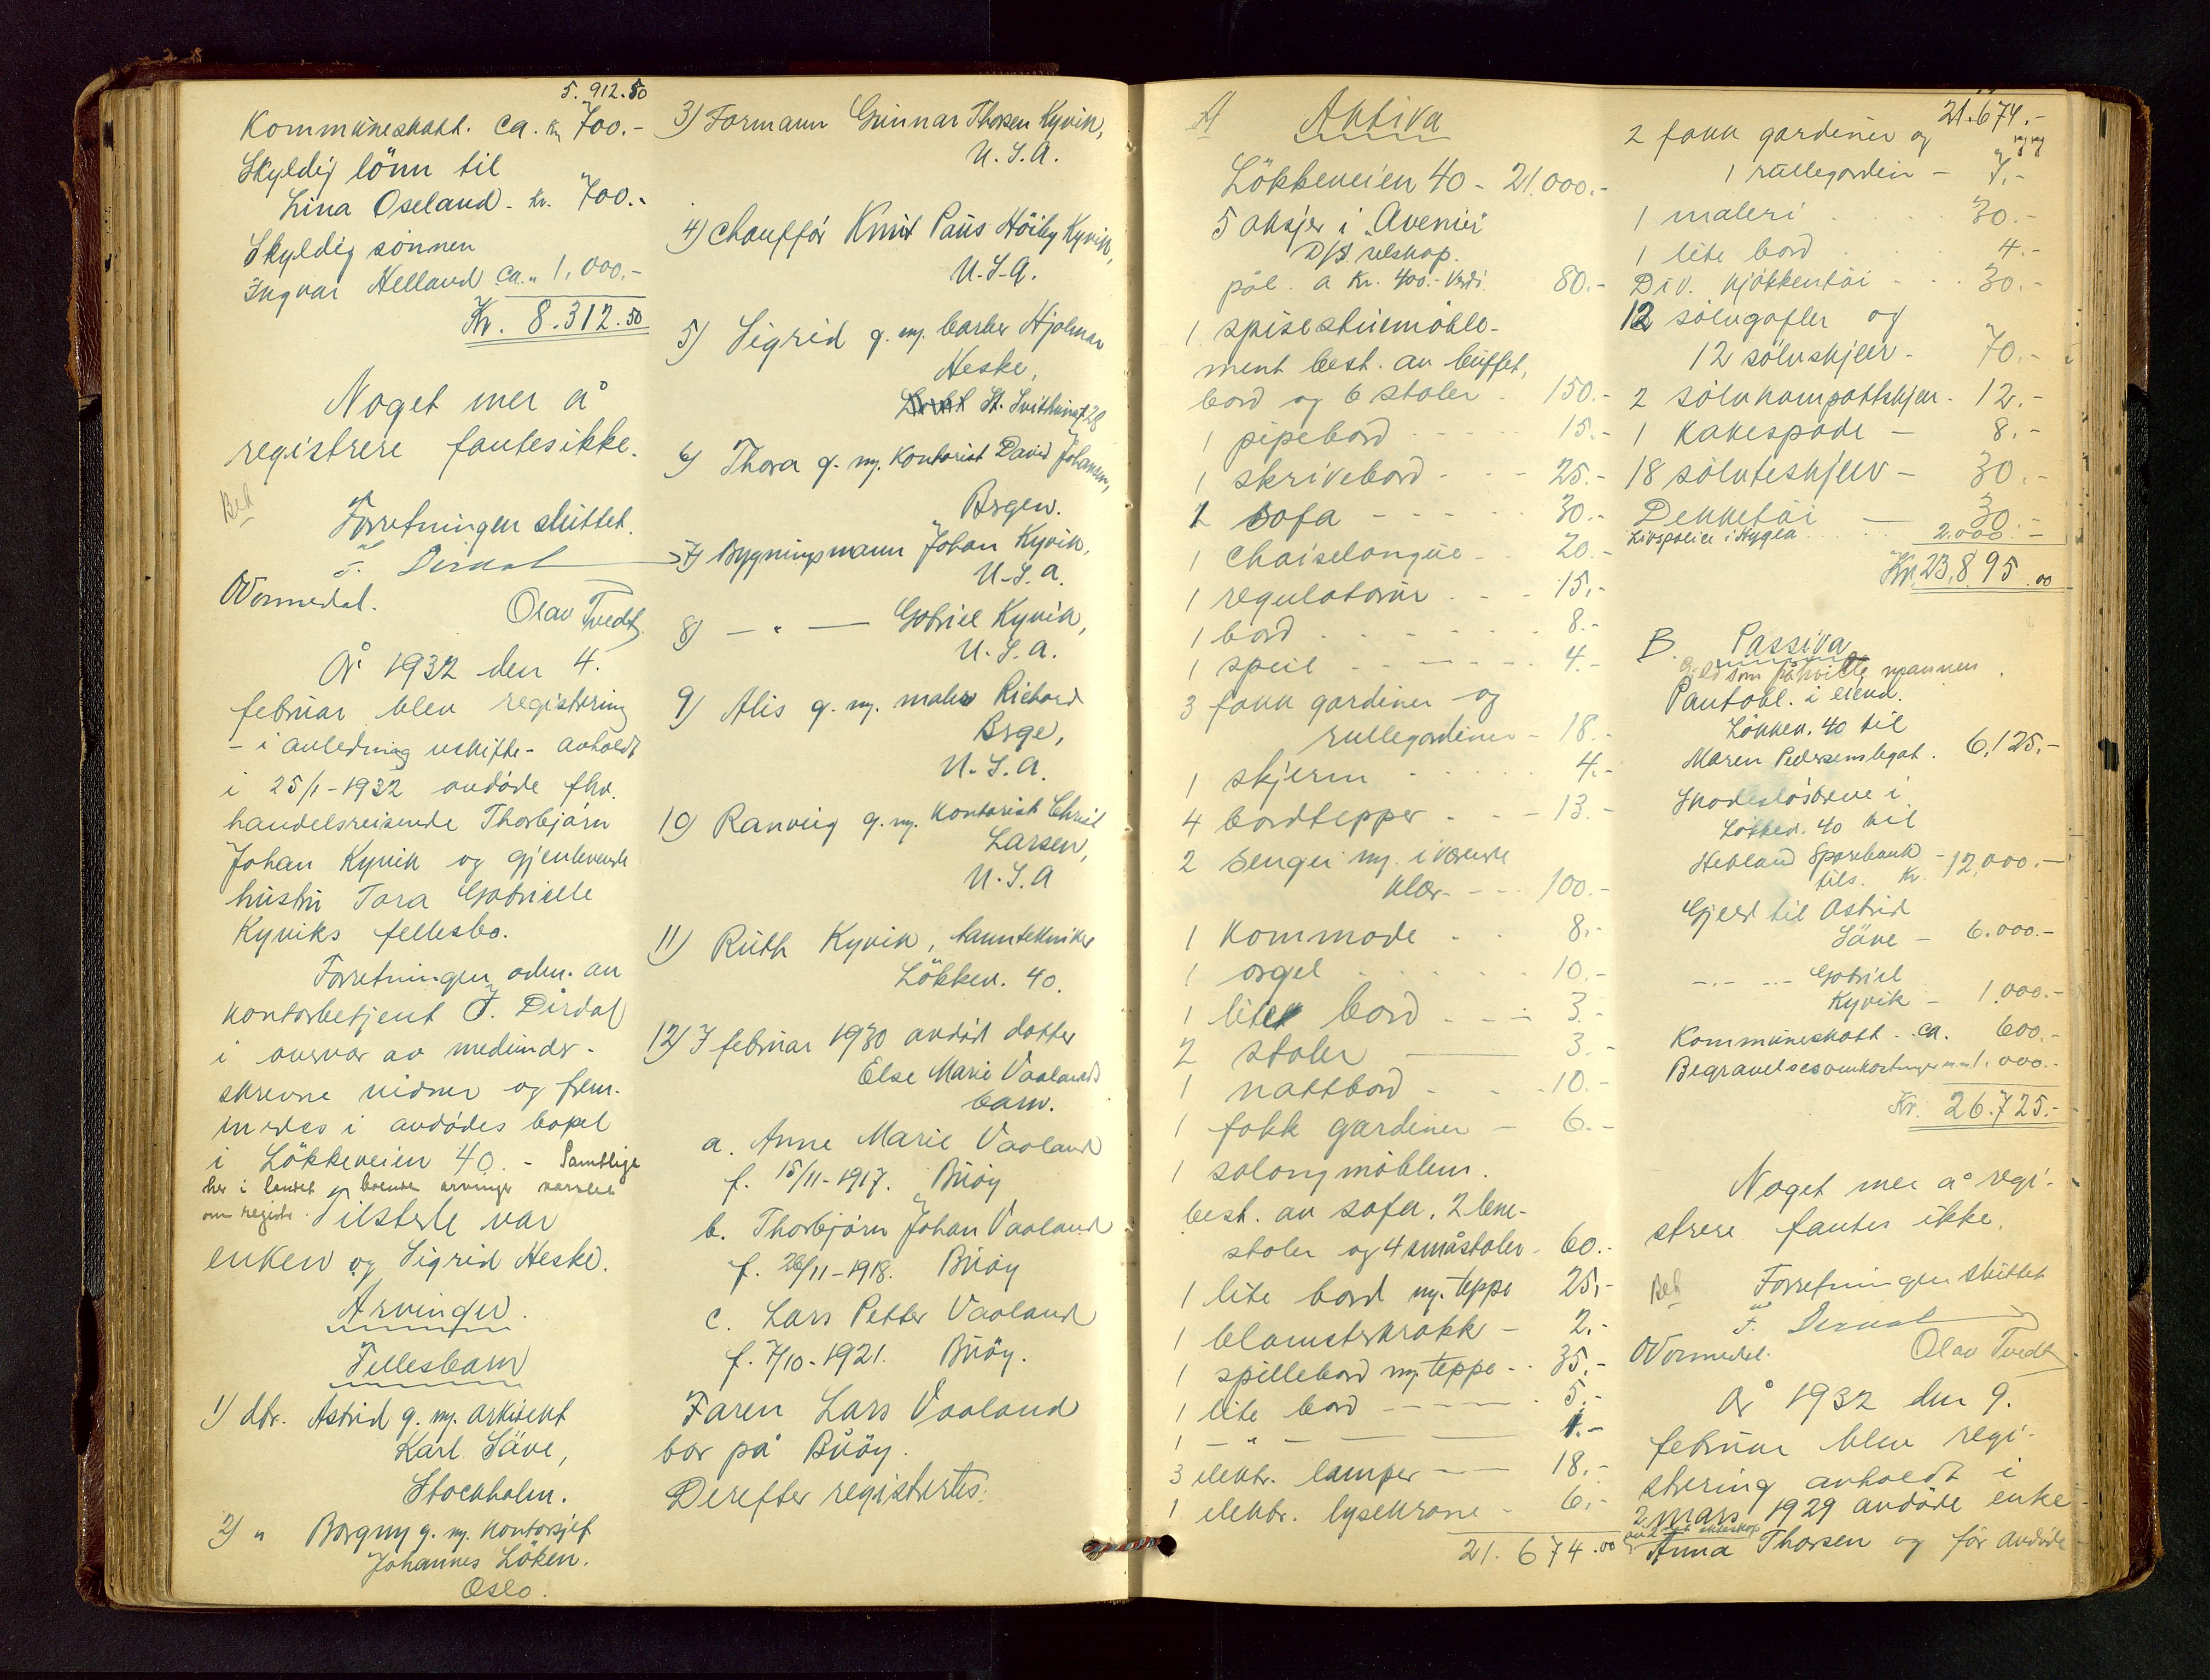 5.912.50
Kommuneskatt. ca. kr. 700.-
Skyldig lönn til
Lina Oseland - kr. 700.-
Skyldig sönnen
Ingvar Helland ca. " 1.000.-
Kr. 8.312.50
Noget mer å
registrere fantes ikke.
Forretningen sluttet.
F. Dirdal
Wormedal.
Olav Tvedt
År 1932 den 4.
februar blev registrering
- i anledning uskifte - avholdt
i 25/1-1932 avdöde fhv.
handelsreisende Thorbjörn
Johan Kyvik og gjenlevende
hustru Tora Gabrielle
Kyviks fellesbo.
Forretningen adm. av
kontorbetjent F. Dirdal
i overvær av medunder-
skrevne vidner og frem-
medes i avdödes bopel
i Lökkeveien 40. - Samtlige
her i landet boende arvinger varslet
om registr. Tilstede var
enken og Sigrid Heske.
Arvinger.
Fellesbarn
1) dtr. Astrid g. m. arkitekt
Karl Säve,
Stockholm.
2) " Borgny g. m. kontorsjef
Johannes Löken.
Oslo.
3) Formann Gunnar Thorsen Kyvik,
U.S.A.
4) Chaufför Knut Paus Höiby Kyvik,
U.S.A.
5) Sigrid g. m. barber Hjalmar
Heske,
St. Svithunsgt 28
6) Thora g. m. kontorist David Johansen,
Bergen.
7) Bygningsmann Johan Kyvik,
U.S.A.
8) — " — Gabriel Kyvik,
U.S.A.
9) Alis g. m. maler Richard
Berge,
U.S.A.
10) Ranveig g. m. kontorist
Larsen,
U.S.A
11) Ruth Kyvik, tanntekniker
Lökkev. 40.
12) I februar 1930 avdöd datter
Else Marie Vaalands
barn.
a. Anne Marie Vaaland
f. 15/11-1917. Buöy
b. Thorbjörn Johan Vaaland
f. 26/11-1918. Buöy
c. Lars Petter Vaaland
f. 7/10-1921. Buöy.
Faren Lars Vaaland
bor på Buöy.
Derefter registrertes:
A Aktiva
Lökkeveien 40 - 21.000.-
5 aksjer i "Avenue"
D/S selskap.
pål. a kr. 400.- verdi 80.-
1 spisestuemöble-
ment best. av buffet,
bord og 6 stoler - 150.-
1 pipebord - - - 15.-
1 skrivebord - - - 25.-
1 sofa - - - - - 30.-
1 chaiselongue - - 20.-
1 regulatorur - - - 15.-
1 bord - - - - - - 8.-
1 speil - - - - - - 4.-
3 fakk gardiner og
rullegardiner - 18.-
1 skjerm - - - - 4.-
4 bordtepper - - - 13.-
2 senger m. i værende
klær - - - 100.-
1 kommode - - 8.-
1 orgel - - - - - 10.-
1 litet bord - - - 3.-
2 stoler ——— 3.-
1 nattbord - - - 10.-
1 fakk gardiner - 6.-
1 salongmöblem.
best. av sofa, 2 lene-
stoler og 4 småstoler - 60.-
1 lite bord m. teppe 25.-
1 blomsterkrakk - 2.-
1 spillebord m. teppe - 35.-
1 lite bord - - - - 5.-
1 — " — — 1.-
3 elektr. lamper - - 18.-
1 elektr. lysekrone - 6.-
21.674.00
21.674.-
2 fakk gardiner og
1 rullegardin - 7.-
1 maleri - - - - 30.-
1 lite bord - - - 4.-
Div. kjökkentöi - - - 30.-
12 sölvgafler og
12 sölvskjeer - 70.-
2 sölvkompottskjeer - 12.-
1 kakespade - 8.-
18 sölvteskjeer - 30.-
Dekketöi — 30.-
Livspolice i Hygea - - - 2.000.-
Kr. 23.895.00
B. Passiva
Gjeld som påhvilte mannen
Pantobl. i eiend.
Lökkev. 40 til
Maren Pedersens legat. 6.125.-
Skadeslösbreve i
Lökkev. 40 til
Hetland Sparebank
tils. kr. - 12.000.-
Gjeld til Astrid
Säve - 6.000.-
—.— —.— Gabriel
Kyvik - 1.000.-
Kommuneskatt - ca. 600.-
Begravelsesomkostninger m.m. 1.000.-
Kr. 26.725.-
Noget mer å regi-
strere fantes ikke.
Forretningen sluttet
F. Dirdal
Wormedal.
Olav Tvedt
År 1932 den 9.
februar blev regi-
strering avholdt i
2. mars 1929 avdöde enke
Anna Thorsen og för avdöde